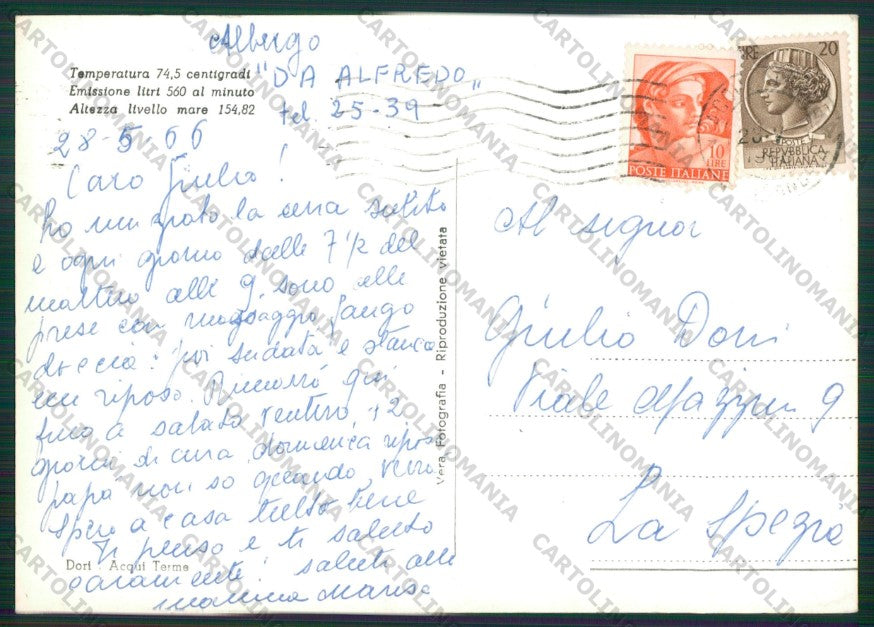 Albergo
"DA ALFREDO"
tel 25-39
Temperatura 74,5 centigradi
Emissione litri 560 al minuto
Altezza livello mare 154,82
28-5-66
Caro Giulio!
Ho iniziato la cura subito
e ogni giorno dalle 7 1/2 del
mattino alle 9, sono alle
prese con massaggio fango
doccia: poi sudata e stanca
mi riposo. Rimarrò qui
fino a sabato venturo, 12
giorni di cura, domenica riposo
papà non so quando verrà
Spero a casa tutto bene
Ti penso e ti saluto
caramente! saluti alla
mamma Marisa
Dori - Acqui Terme
Vera Fotografia - Riproduzione vietata
10
LIRE
POSTE ITALIANE
LIRE 20
POSTE
REPVBBLICA
ITALIANA
Al signor
Giulio Doni
Viale Mazzini 9
La Spezia
CARTOLINOMANIA